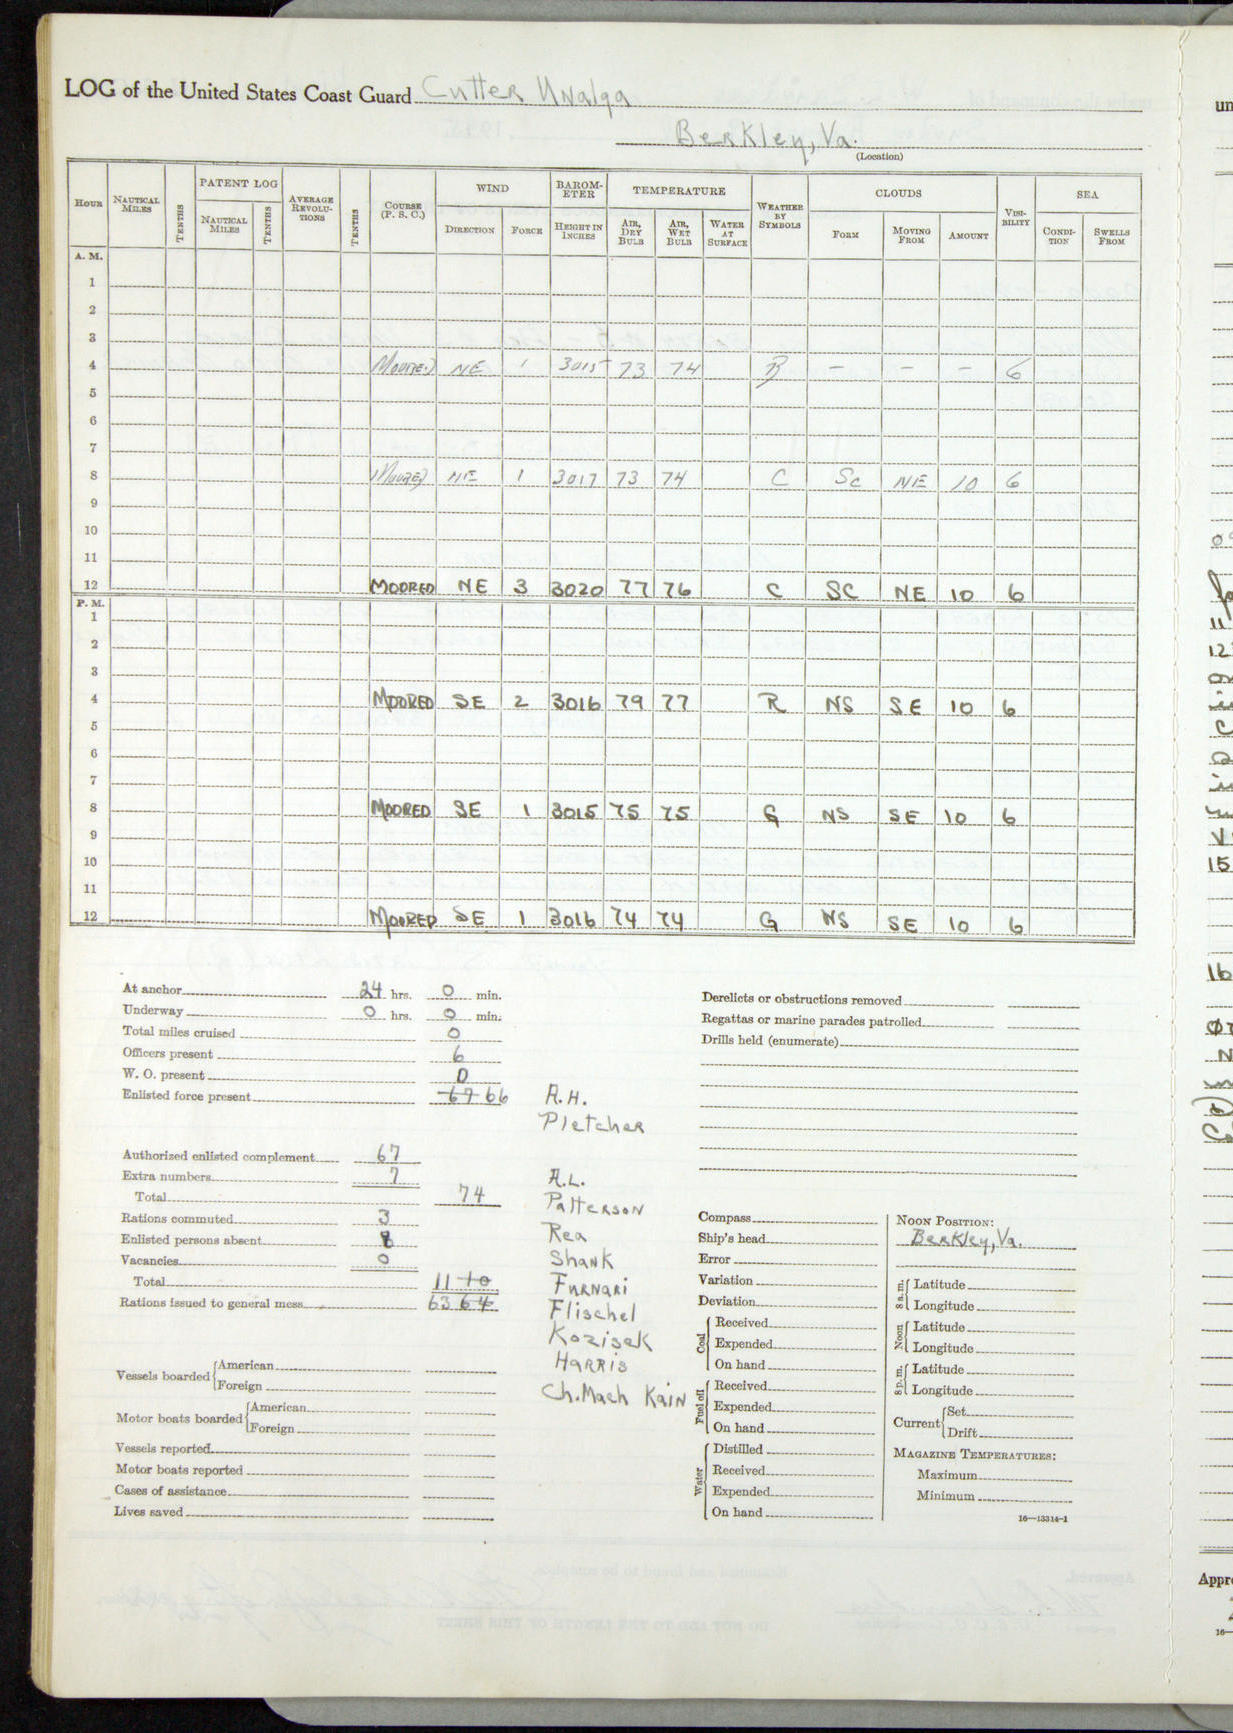 LOG of the United States Coast Guard Cutter Unalga
Berkley, Va.
(Location)
HOUR NAUTICAL MILES TENTHS PATENT LOG NAUTICAL MILES TENTHS AVERAGE REVOLUTIONS TENTHS COURSE (P. S. C.) WIND DIRECTION FORCE BAROMETER HEIGHT IN INCHES TEMPERATURE AIR, DRY BULB AIR, WET BULB WATER AT SURFACE WEATHER BY SYMBOLS CLOUDS FORM MOVING FROM AMOUNT VISIBILITY SEA CONDITION SWELLS FROM
A. M.
1
2
3
4 Moored NE 1 3015 73 74 R - - - 6
5
6
7
8 Moored NE 1 3017 73 74 C Sc NE 10 6
9
10
11
12 MOORED NE 3 3020 77 76 C SC NE 10 6
P. M.
1
2
3
4 MOORED SE 2 3016 79 77 R NS SE 10 6
5
6
7
8 MOORED SE 1 3015 75 75 G NS SE 10 6
9
10
11
12 MOORED SE 1 3016 74 74 G NS SE 10 6
At anchor 24 hrs. 0 min.
Underway 0 hrs. 0 min.
Total miles cruised 0
Officers present 6
W. O. present 0
Enlisted force present 67 66
Authorized enlisted complement 67
Extra numbers 7
Total 74
Rations commuted 3
Enlisted persons absent 8
Vacancies 0
Total 11 10
Rations issued to general mess 63 64
Vessels boarded American
Foreign
Motor boats boarded American
Foreign
Vessels reported
Motor boats reported
Cases of assistance
Lives saved
A.H.
Pletcher
A.L.
Patterson
Rea
Shank
Furnari
Flischel
Kozisek
Harris
Ch. Mach Kain
Derelicts or obstructions removed
Regattas or marine parades patrolled
Drills held (enumerate)
Compass
Ship's head
Error
Variation
Deviation
Coal Received
Expended
On hand
Fuel oil Received
Expended
On hand
Water Distilled
Received
Expended
On hand
NOON POSITION:
Berkley, Va.
8 a. m. Latitude
Longitude
Noon Latitude
Longitude
8 p. m. Latitude
Longitude
Current Set
Drift
MAGAZINE TEMPERATURES:
Maximum
Minimum
16—13314-1
un
11
12
15
16
Appr
16—